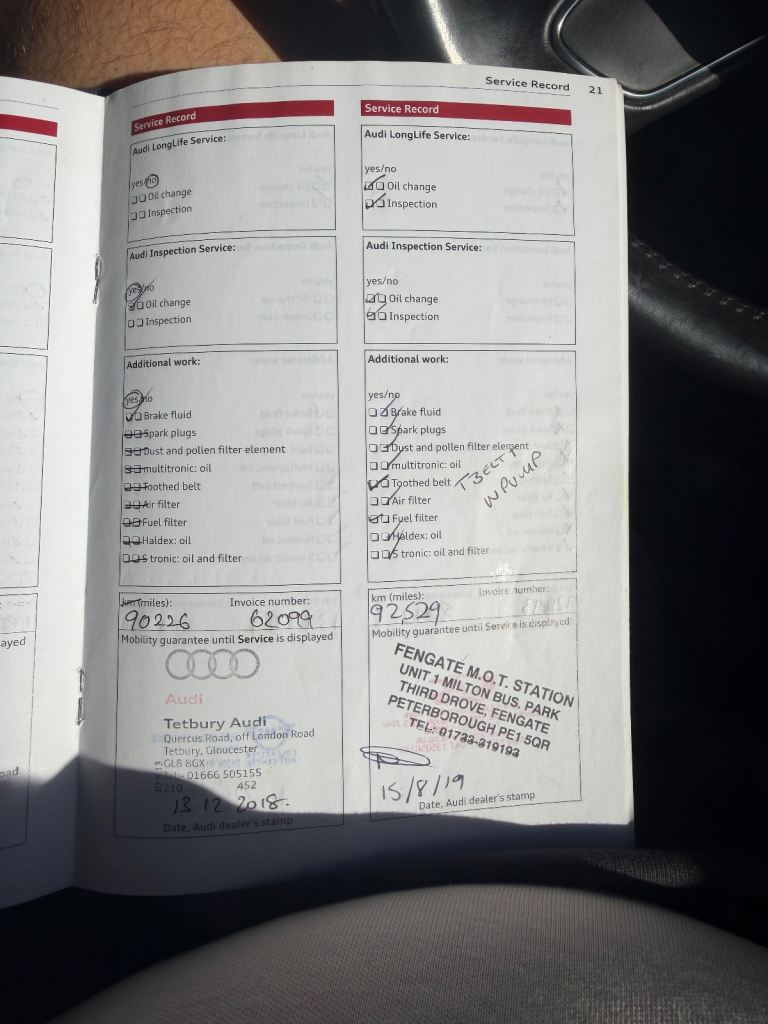 Service Record 21
Service Record
Audi LongLife Service:
yes/no
Oil change
Inspection
Audi Inspection Service:
yes/no
Oil change
Inspection
Additional work:
yes/no
Brake fluid
Spark plugs
Dust and pollen filter element
multitronic: oil
Toothed belt
Air filter
Fuel filter
Haldex: oil
S tronic: oil and filter
km (miles): Invoice number:
90226 62099
Mobility guarantee until Service is displayed
Audi
Tetbury Audi
Quercus Road, off London Road
Tetbury, Gloucester
GL8 8GX
Tel: 01666 505155
210 452
13 12 2018.
Date, Audi dealer's stamp
Service Record
Audi LongLife Service:
yes/no
Oil change
Inspection
Audi Inspection Service:
yes/no
Oil change
Inspection
Additional work:
yes/no
Brake fluid
Spark plugs
Dust and pollen filter element
multitronic: oil
Toothed belt T BELT
W PUMP
Air filter
Fuel filter
Haldex: oil
S tronic: oil and filter
km (miles): Invoice number:
92,529
Mobility guarantee until Service is displayed
FENGATE M.O.T. STATION
UNIT 1 MILTON BUS. PARK
THIRD DROVE, FENGATE
PETERBOROUGH PE1 5QR
TEL: 01733-319193
15/8/19
Date, Audi dealer's stamp
ayed